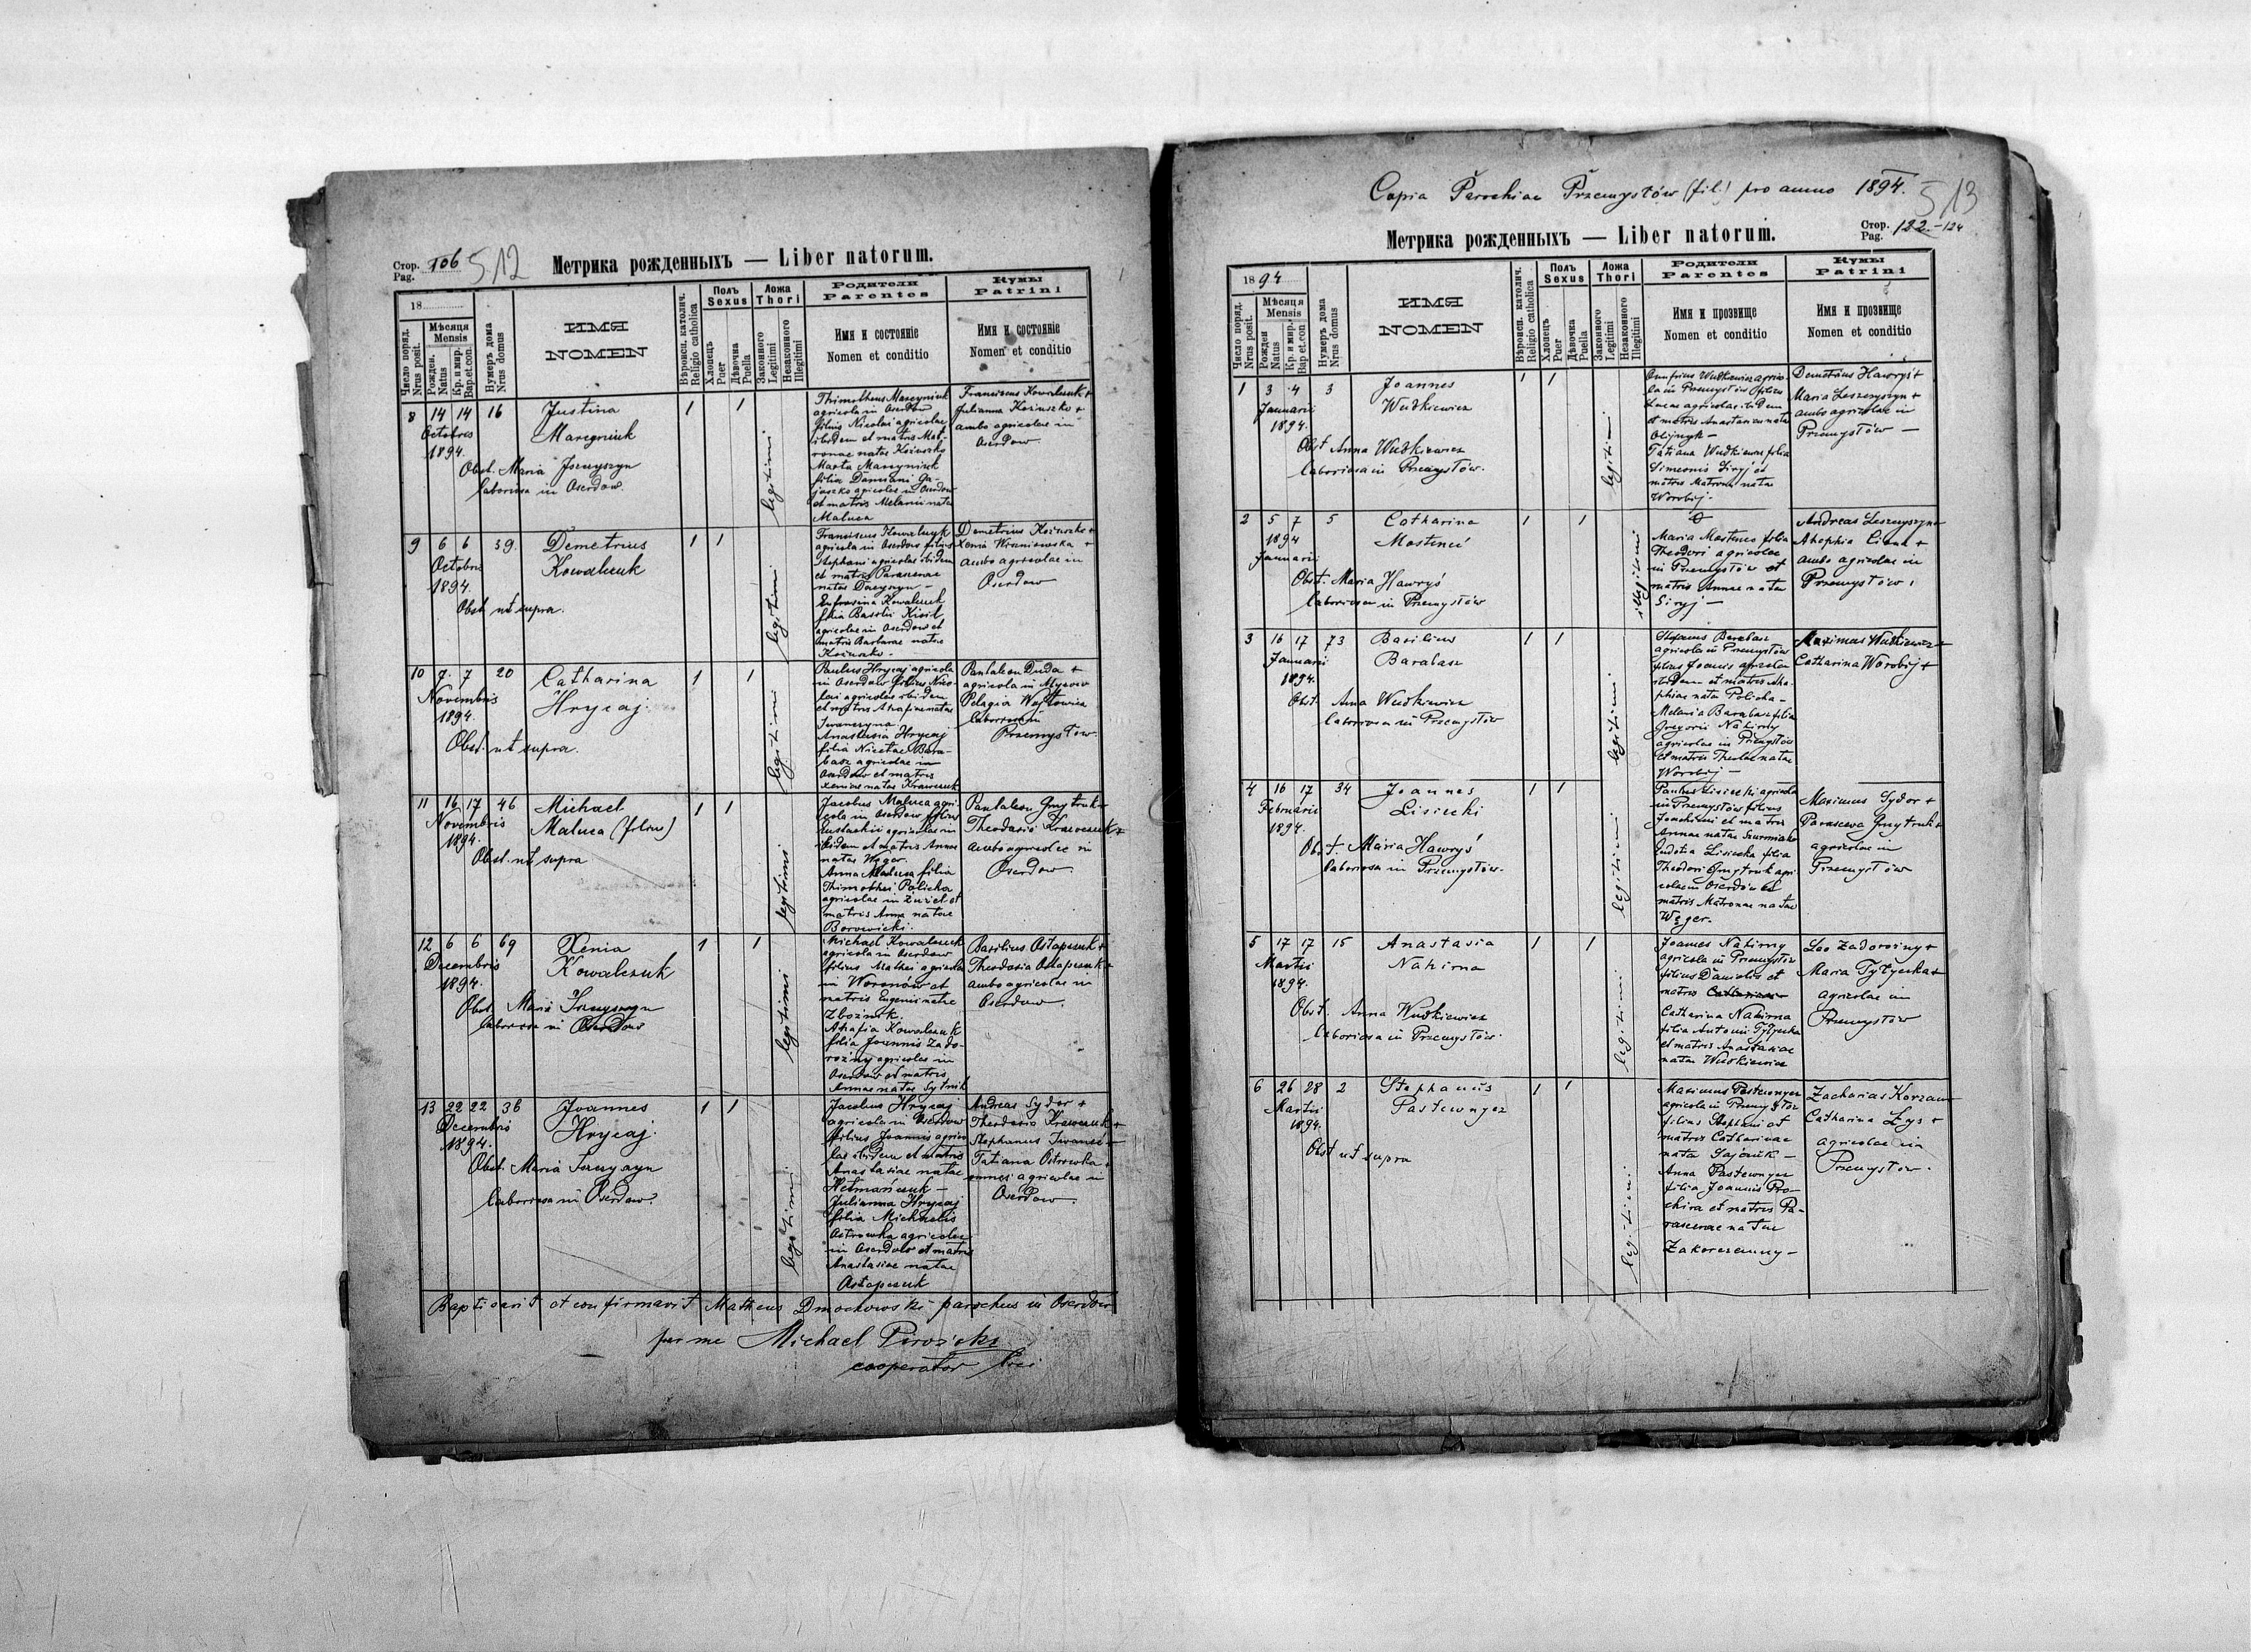 Стор. Pag. 106 512
Метрика рожденныхъ — Liber natorum.
18
Число поряд. Nrus posit.
Мѣсяця Mensis
Рожден. Natus
Кр. и мир. Bap.et.con.
Нумеръ дома Nrus domus
ИМЯ
NOMEN
Вѣроисп. католич. Religio catholica
Полъ Sexus
Хлопець Puer
Дѣвочка Puella
Ложа Thori
Законного Legitimi
Незаконного Illegitimi
Родители Parentes
Имя и состояніе
Nomen et conditio
Кумы Patrini
Имя и состояніе
Nomen et conditio
8 14 14 16 Justina 1 1
Octobris
1894.
Obst. Maria
laboriosa in Oserdow.
legitimi
agricola in Oserdow
filius Nicolai agricolae
ibidem et matris Mat-
ronae natae
filia Damiani Ga-
juszko agricolae in Oserdow
et matris Melanii natae
Maluca
Franciscus Kowalczuk +
Julianna +
ambo agricolae in
Oserdow
9 6 6 39. Demetrius 1 1
Octobris Kowalczuk
1894.
Obst. ut supra.
legitimi
Franciscus Kowalczyk
agricola in Oserdow filius
Stephani agricolae ibidem
et matris Parascevae
Eufrosina Kowalczuk
filia Basilii
agricolae in Oserdow et
matris Barbarae natae
Demetrius +
Xenia Wiszniowska +
ambo agricolae in
Oserdow
10 7. 7 20 Catharina 1 1
Novembris Hrycaj.
1894.
Obst. ut supra.
legitimi
Paulus Hrycaj agricola
in Oserdow filius Nico-
lai agricolae ibidem
et matris Ahafiae natae
Anastasia Hrycaj
filia Nicetae Bara-
basz agricolae in
Oserdow et matris
Xeniae natae Krawczuk
Pantaleon Duda +
agricola in
Pelagia Wojtowicz
laboriosa in
Przemysłow.
11 16 17 46 Michael 1 1
Novembris Maluca (filius)
1894.
Obst. ut supra
legitimi
Jacobus Maluca agri-
cola in Oserdow filius
Eustachii agricolae in
ibidem et matris Annae
natae Węger.
Anna Maluca filia
Thimothei Policha
agricolae in et
matris Anna natae
Borowicki.
Pantaleon Gmytruk +
Theodosia Krawczuk +
ambo agricolae in
Oserdow
12 6 6 69 Xenia 1 1
Decembris Kowalczuk
1894.
Obst. Maria
laboriosa in Oserdow
legitimi
Michael Kowalczuk
agricola in Oserdow
filius Mathei agricolae
in Woronow et
matris Eugenii natae
Ahafia Kowalczuk
filia Joannis Zado-
rozny agricolae in
Oserdow et matris
Annae natae Sytnik
Basilius Ostapczuk +
Theodosia Ostapczuk +
ambo agricolae in
Oserdow.
13 22 22 36 Joannes 1 1
Decembris Hrycaj.
1894.
Obst. Maria
laboriosa in Oserdow.
legitimi
Jacobus Hrycaj
agricola in Oserdow
filius Joannis agrico
lae ibidem et matris
Anastasiae natae
Hetmańczuk —
Julianna Hrycaj
filia Michaelis
Ostrowka agricolae
in Oserdow et matris
Anastasiae natae
Ostapczuk
Andreas Sydor +
Theodosia Krawczuk +
Stephanus +
Tatiana Ostrowka +
omnes agricolae in
Oserdow
Baptisavit et confirmavit Matheus Dmochowski parochus in Oserdów
per me Michael
cooperator loci
Copia Parochiae Przemysłów (fil.) pro anno 1894.
513
Метрика рожденныхъ — Liber natorum.
Стор. Pag. 122.-124
1894
Число поряд. Nrus posit.
Мѣсяця Mensis
Рожден Natus
Кр. и мир. Bap.et.con.
Нумеръ дома Nrus domus
ИМЯ
NOMEN
Вѣроисп. католич. Religio catholica
Полъ Sexus
Хлопець Puer
Дѣвочка Puella
Ложа Thori
Законного Legitimi
Незаконного Illegitimi
Родители Parentes
Имя и прозвище
Nomen et conditio
Кумы Patrini
Имя и прозвище
Nomen et conditio
1 3 4 3 Joannes 1 1
Januarii Wudkiewicz
1894.
Obst Anna Wudkiewicz
laboriosa in Przemysłów.
legitimi
Onufrius Wudkiewicz agrico-
la in Przemysłów filius
Lucae agricolae ibidem
et matris Anastasiae natae
Olijnyk —
Tatiana Wudkiewicz filia
Simeonis Siryj et
matris Matrona natae
Worobij.
Demetrius Hawryś +
Maria Leszczyszyn +
ambo agricolae in
Przemysłów —
2 5 7 5 Catharina 1 1
1894
Januarii
Obst. Maria Hawryś
laboriosa in Przemysłów
illegitimi
Theodori agricolae
in Przemysłów et
matris Annae natae
Siryj —
Andreas Leszczyszyn +
ambo agricolae in
Przemysłów.
3 16 17 73 Basilius 1 1
Januarii Barabasz
1894.
Obst. Anna Wudkiewicz
laboriosa in Przemysłów
legitimi
Stefanus Barabasz
agricola in Przemysłów
filius Joannis agricolae
ibidem et matris Aha-
phiae natae Policha —
Melania Barabasz filia
Gregorii Nahirny
agricolae in Przemysłów
et matris Theclae natae
Worobij —
Maximus Wudkiewicz +
Catharina Worobij +
4 16 17 34 Joannes 1 1
Februarii Lisiecki
1894.
Obst. Maria Hawryś
laboriosa in Przemysłów.
legitimi
Paulus Lisiecki agricola
in Przemysłów filius
Joachimi et matris
Annae natae
Eudokia Lisiecka filia
Theodori Gmytruk agri
colae in Oserdów et
matris Matronae natae
Węger.
Maximus Sydor +
Parasceva Gmytruk +
agricolae in
Przemysłów
5 17 17 15 Anastasia 1 1
Martii Nahirna
1894.
Obst. Anna Wudkiewicz
laboriosa in Przemysłów.
legitimi
Joannes Nahirny
agricola in Przemysłów
filius Danielis et
matris
Catharina Nahirna
filia Antonii Tyżycka
et matris Anastasiae
natae Wudkiewicz
Leo Zadorozny +
Maria Tyżycka +
agricolae in
Przemysłów
6 26 28 2 Stephanus 1 1
Martii Pastewnyez
1894.
Obst ut supra
legitimi
Maximus Pastewnyez
agricola in Przemysłow
filius Stephani et
matris Catharinae
nata Sajczuk —
Anna Pastewnyez
filia Joannis Pro-
chira et matris Pa-
rascevae natae
Zakorczemny —
Zacharias Korzan +
Catharina Łys +
agricolae in
Przemysłow.